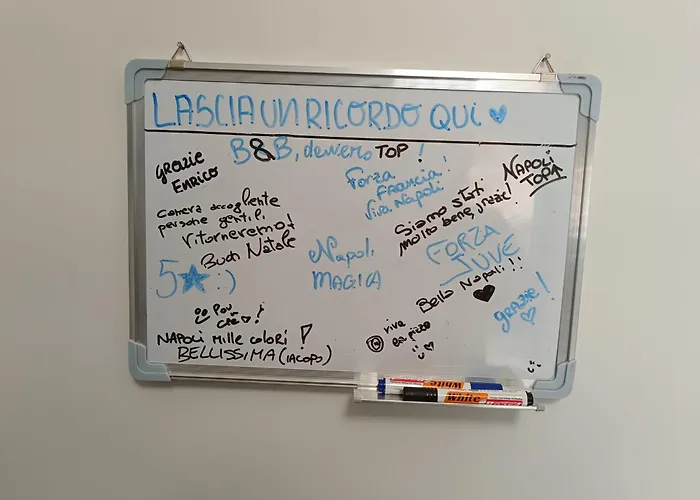 LASCIA UN RICORDO QUI ♥
B&B, davvero TOP !
GRAZIE
ENRICO
Forza
FRANCIA !
Viva Napoli
NAPOLI
TOP↑
camera accogliente
persone gentili,
Ritorneremo!
Buon Natale
Siamo stati
molto bene, grazie!
5★ :)
Napoli
MAGICA
FORZA
JUVE
Bella Napoli !!
♥
GRAZIE!
♡
NAPOLI Mille COLORI !
BELLISSIMA (IACOPO)
viva
la pizza
white
white